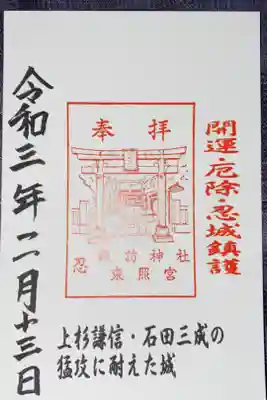 開運・厄除・忍城鎮護
奉拝
忍 諏訪神社
東照宮
令和三年二月十三日
上杉謙信・石田三成の
猛攻に耐えた城